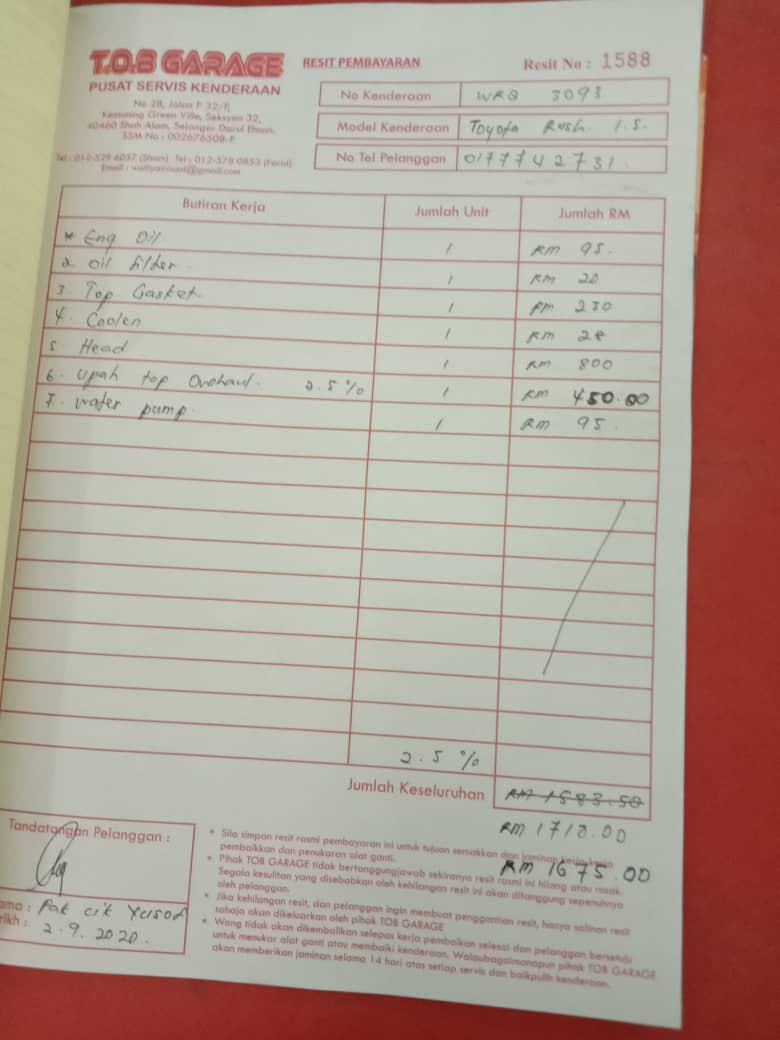 T.O.B GARAGE
PUSAT SERVIS KENDERAAN
No 28, Jalan P 32/P,
Kemuning Green Ville, Seksyen 32,
40460 Shah Alam, Selangor Darul Ehsan.
SSM No : 002676508-P
Tel : 012-529 6057 (Sham) Tel : 012-578 0853 (Farid)
RESIT PEMBAYARAN
Resit No : 1588
No Kenderaan WRQ 3093
Model Kenderaan Toyota Rush 1.5.
No Tel Pelanggan 0177742731.
Butiran Kerja Jumlah Unit Jumlah RM
* Eng Oil 1 RM 95.
2 oil filter. 1 RM 20
3. Top Gasket. 1 RM 230
4. Coolen 1 RM 28
5. Head 1 RM 800
6. upah top Ovohaul. 2.5% 1 RM 450.00
7. water pump. 1 RM 95.
2.5 %
Jumlah Keseluruhan RM 1583.50
RM 1718.00
RM 1675.00
Tandatangan Pelanggan :
ama : Pak cik
rikh : 2.9.2020.
* Sila simpan resit rasmi pembayaran ini untuk tujuan semakkan dan jaminan kerja-kerja
pembaikkan dan penukaran alat ganti.
* Pihak TOB GARAGE tidak bertanggungjawab sekiranya resit rasmi ini hilang atau rosak.
Segala kesulitan yang disebabkan oleh kehilangan resit ini akan ditanggung sepenuhnya
oleh pelanggan.
* Jika kehilangan resit, dan pelanggan ingin membuat penggantian resit, hanya salinan resit
sahaja akan dikeluarkan oleh pihak TOB GARAGE
* Wang tidak akan dikembalikan selepas kerja pembaikan selesai dan pelanggan bersetuju
untuk menukar alat ganti atau membaiki kenderaan. Walaubagaimanapun pihak TOB GARAGE
akan memberikan jaminan selama 14 hari atas setiap servis dan baikpulih kenderaan.